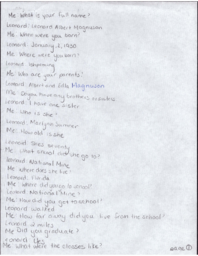 Me: What is your full name?
Leonard: Leonard Albert Magnuson
Me: When were you born?
Leonard: January 3, 1930
Me: Where were you born?
Leonard: Wyoming
Me: Who are your parents?
Leonard: Albert and Magnuson
Me: Do you have any brothers or sisters
Leonard: I have one sister
Me: Who is she?
Leonard: Marlyne
Me: How old is she
Leonard: She's
Me: What school did she go to?
Leonard: National Mine
Me: Where does she live
Leonard: Florida
Me: Where did you go to school?
Leonard: National Mine
Me: How did you get to school?
Leonard: Walked
Me: How far did you live from the school?
Leonard: 2 miles
Me: Did you graduate?
Leonard: Yes
Me: What were the classes like?